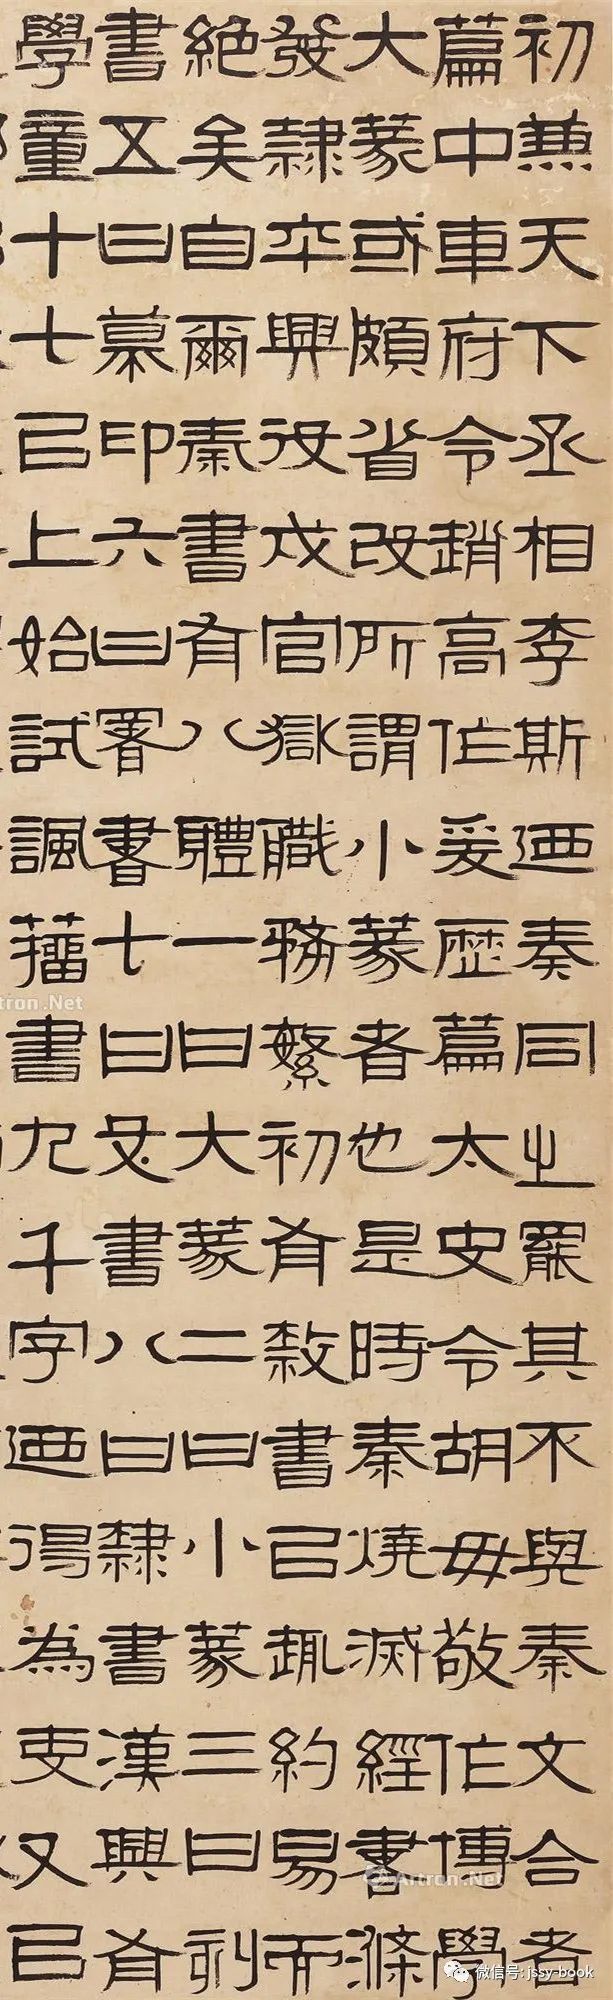 初兼天下丞相李斯迺奏同之罷其不與秦文合者
篇中車府令趙高作爰歷篇太史令胡毋敬作博學
大篆或頗省改所謂小篆者也是時秦燒滅經書滌
發隸卒興役戍官獄職務繁初有隸書已趣約易而
絕矣自爾秦書有八體一曰大篆二曰小篆三曰刻
書五曰慕印六曰署書七曰殳書八曰隸書漢興有
學童十七已上始試諷籀書九千字迺得為吏又已
tron.Net
Artron.Net
微信号: jssy-book